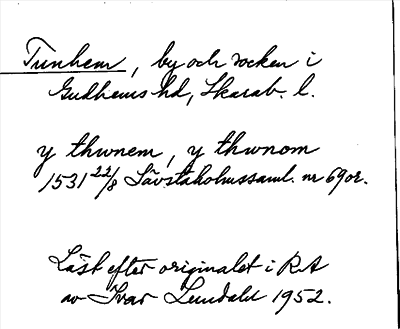 Tunhem, by och socken i
Gudhems hd, Skarab. l.
y thwnem, y thwnom
1531 22/8 Sävstaholmssaml. nr 69 or.
Läst efter originalet i RA
av Ivar Lundahl 1952.